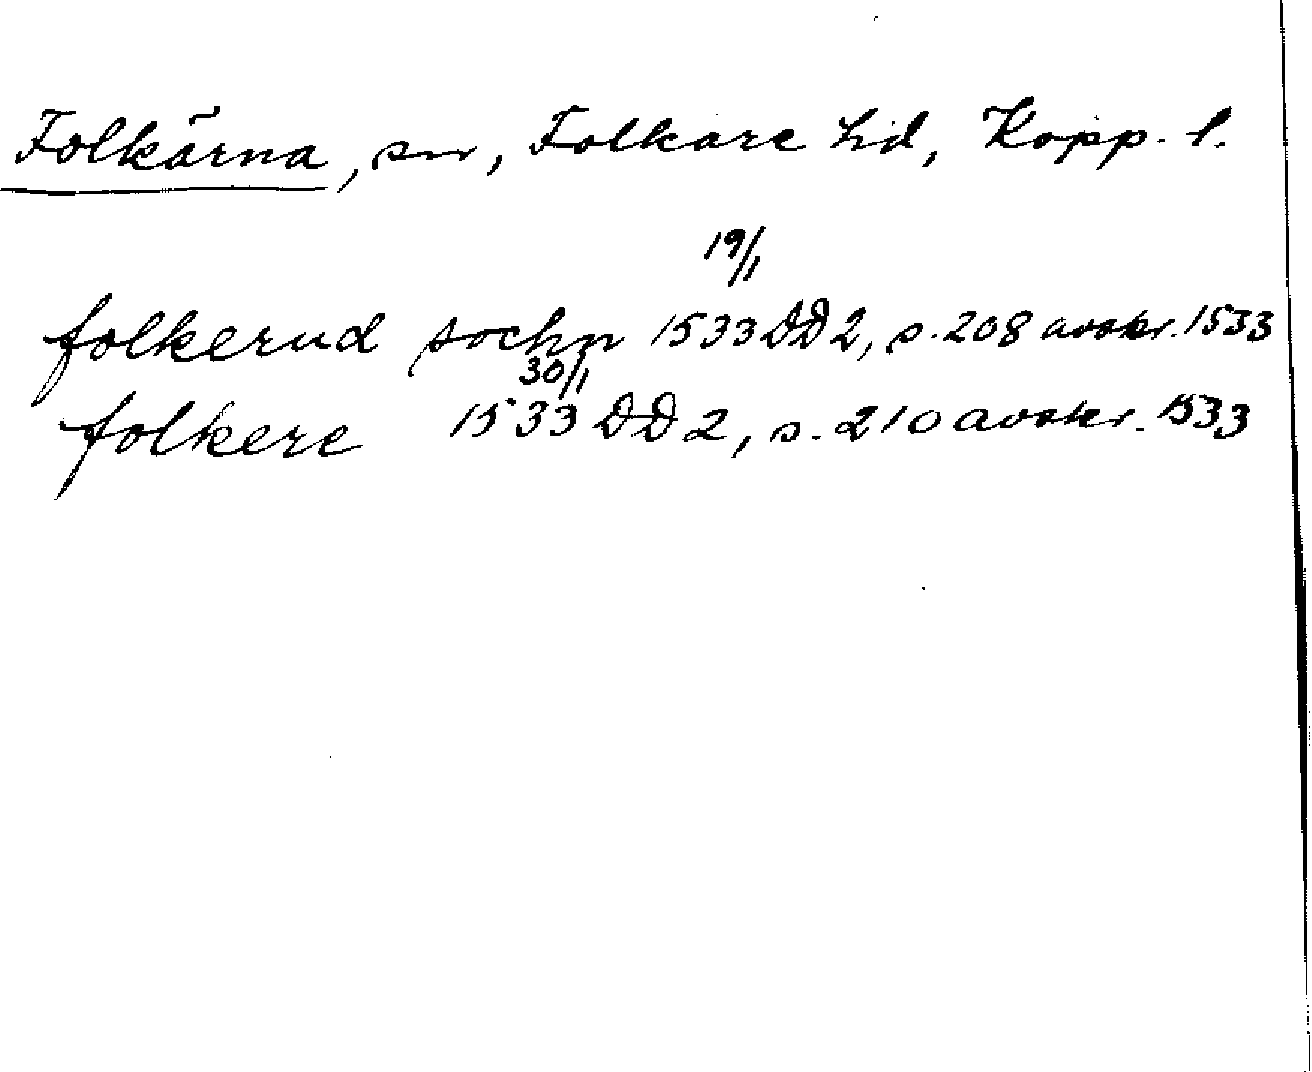 Folkärna, sn, Folkare hd, Kopp. l.
19/1
folkerud sochn 1533 DD 2, s. 208 avskr. 1533
30/1
folkere 1533 DD 2, s. 210 avskr. 1533